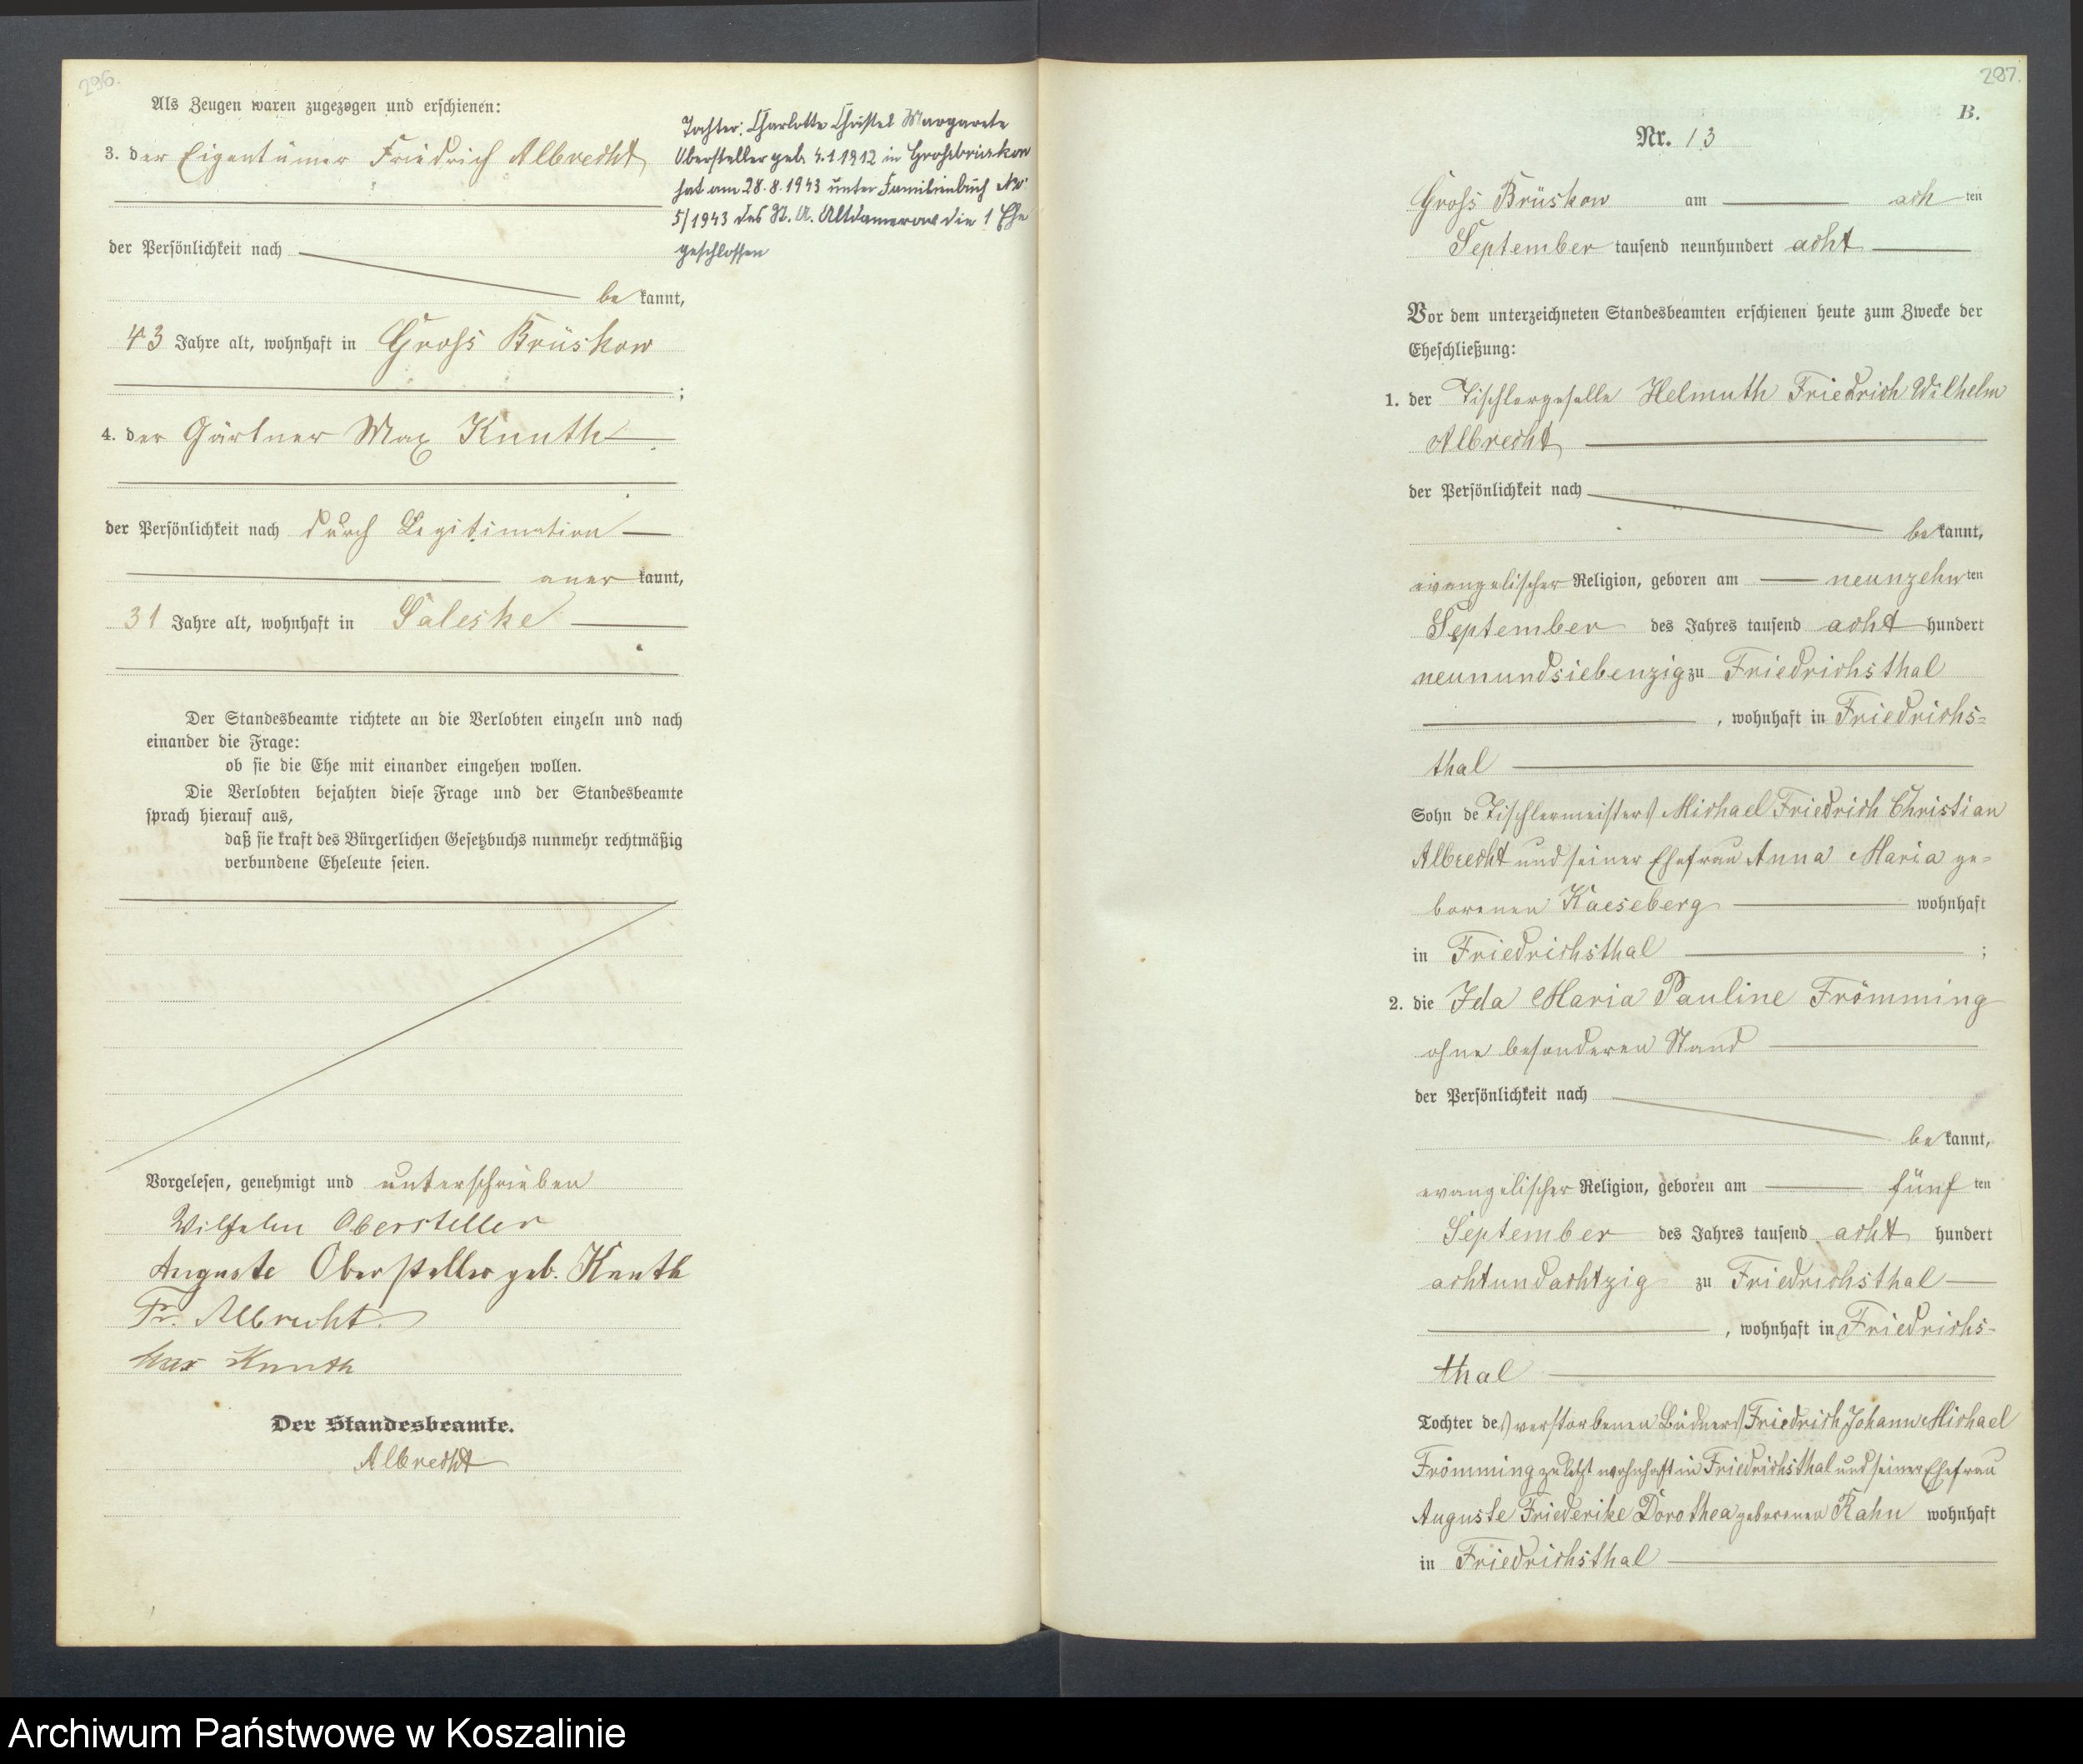 296.
Als Zeugen waren zugezogen und erschienen:
3. der Eigentümer Friedrich Albrecht
der Persönlichkeit nach
be kannt,
43 Jahre alt, wohnhaft in Gross Brüskow
;
4. der Gärtner Max Knuth
der Persönlichkeit nach durch Legitimation
aner kannt,
31 Jahre alt, wohnhaft in Saleske
Der Standesbeamte richtete an die Verlobten einzeln und nach
einander die Frage:
ob sie die Ehe mit einander eingehen wollen.
Die Verlobten bejahten diese Frage und der Standesbeamte
sprach hierauf aus,
daß sie kraft des Bürgerlichen Gesetzbuchs nunmehr rechtmäßig
verbundene Eheleute seien.
Vorgelesen, genehmigt und unterschrieben
Wilhelm Obersteller
Auguste Obersteller geb. Knuth
Fr. Albrecht.
Max Knuth
Der Standesbeamte.
Albrecht
Tochter: Charlotte Christel Margarete
Obersteller geb. 4.1.1912 in Großbrüskow
hat am 28.8.1943 unter Familienbuch No
5/1943 des St. A. Altdamerow die 1 Ehe
geschlossen
297.
B.
Nr. 13
Gross Brüskow am ach ten
September tausend neunhundert acht
Vor dem unterzeichneten Standesbeamten erschienen heute zum Zwecke der
Eheschließung:
1. der Tischlergeselle Helmuth Friedrich Wilhelm
Albrecht
der Persönlichkeit nach
be kannt,
evangelischer Religion, geboren am neunzehn ten
September des Jahres tausend acht hundert
neunundsiebenzig zu Friedrichsthal
, wohnhaft in Friedrichs-
thal
Sohn des Tischlermeisters Michael Friedrich Christian
Albrecht und seiner Ehefrau Anna Maria ge-
borenen Kaeseberg wohnhaft
in Friedrichsthal ;
2. die Ida Maria Pauline Frömming
ohne besonderen Stand
der Persönlichkeit nach
be kannt,
evangelischer Religion, geboren am fünf ten
September des Jahres tausend acht hundert
achtundachtzig zu Friedrichsthal
, wohnhaft in Friedrichs-
thal
Tochter des verstorbenen Büdners Friedrich Johann Michael
Frömming zuletzt wohnhaft in Friedrichsthal und seiner Ehefrau
Auguste Friederike Dorothea geborenen Rahn wohnhaft
in Friedrichsthal
Archiwum Państwowe w Koszalinie